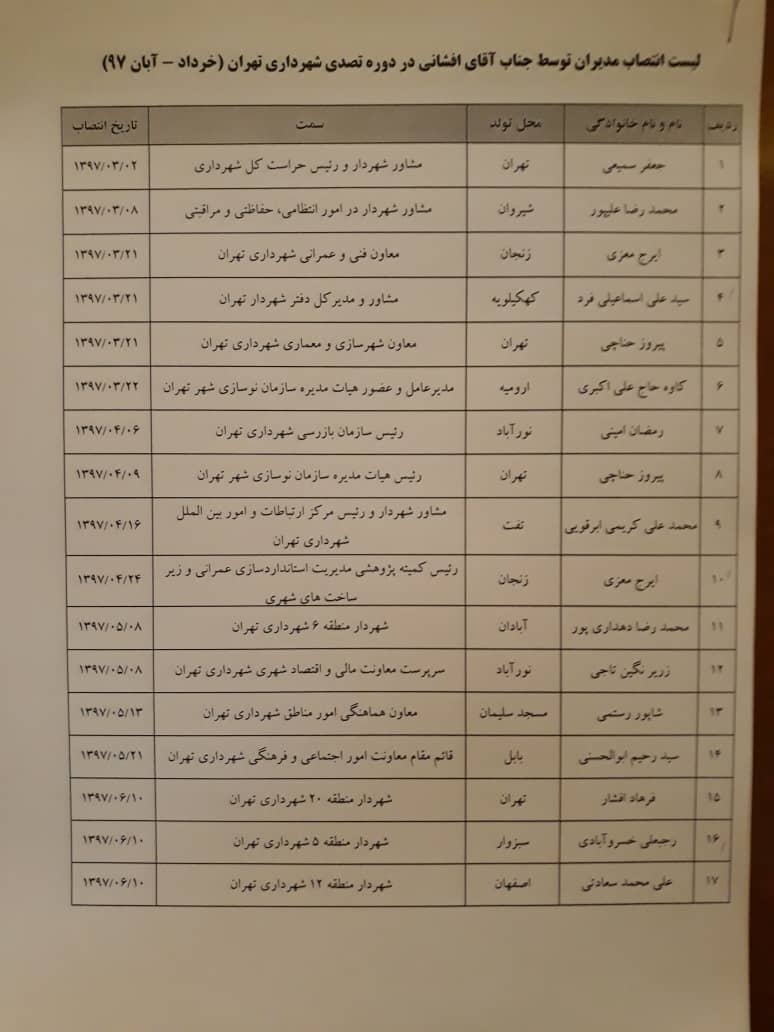 لیست انتصاب مدیران توسط جناب آقای افشانی در دوره تصدی شهرداری تهران (خرداد - آبان ۹۷)
ردیف نام و نام خانوادگی محل تولد سمت تاریخ انتصاب
۱ جعفر سمیعی تهران مشاور شهردار و رئیس حراست کل شهرداری ۱۳۹۷/۰۳/۰۲
۲ محمد رضا علیپور شیروان مشاور شهردار در امور انتظامی، حفاظتی و مراقبتی ۱۳۹۷/۰۳/۰۸
۳ ایرج معزی زنجان معاون فنی و عمرانی شهرداری تهران ۱۳۹۷/۰۳/۲۱
۴ سید علی اسماعیلی فرد کهکیلویه مشاور و مدیرکل دفتر شهردار تهران ۱۳۹۷/۰۳/۲۱
۵ پیروز حناچی تهران معاون شهرسازی و معماری شهرداری تهران ۱۳۹۷/۰۳/۲۱
۶ کاوه حاج علی اکبری ارومیه مدیرعامل و عضور هیات مدیره سازمان نوسازی شهر تهران ۱۳۹۷/۰۳/۲۲
۷ رمضان امینی نورآباد رئیس سازمان بازرسی شهرداری تهران ۱۳۹۷/۰۴/۰۶
۸ پیروز حناچی تهران رئیس هیات مدیره سازمان نوسازی شهر تهران ۱۳۹۷/۰۴/۰۹
۹ محمد علی کریمی ابرقویی تفت مشاور شهردار و رئیس مرکز ارتباطات و امور بین الملل
شهرداری تهران ۱۳۹۷/۰۴/۱۶
۱۰ ایرج معزی زنجان رئیس کمیته پژوهشی مدیریت استانداردسازی عمرانی و زیر
ساخت های شهری ۱۳۹۷/۰۴/۲۴
۱۱ محمد رضا دهداری پور آبادان شهردار منطقه ۶ شهرداری تهران ۱۳۹۷/۰۵/۰۸
۱۲ زریر نگین تاجی نورآباد سرپرست معاونت مالی و اقتصاد شهری شهرداری تهران ۱۳۹۷/۰۵/۰۸
۱۳ شاپور رستمی مسجد سلیمان معاون هماهنگی امور مناطق شهرداری تهران ۱۳۹۷/۰۵/۱۳
۱۴ سید رحیم ابوالحسنی بابل قائم مقام معاونت امور اجتماعی و فرهنگی شهرداری تهران ۱۳۹۷/۰۵/۲۱
۱۵ فرهاد افشار تهران شهردار منطقه ۲۰ شهرداری تهران ۱۳۹۷/۰۶/۱۰
۱۶ رجبعلی خسروآبادی سبزوار شهردار منطقه ۵ شهرداری تهران ۱۳۹۷/۰۶/۱۰
۱۷ علی محمد سعادتی اصفهان شهردار منطقه ۱۲ شهرداری تهران ۱۳۹۷/۰۶/۱۰